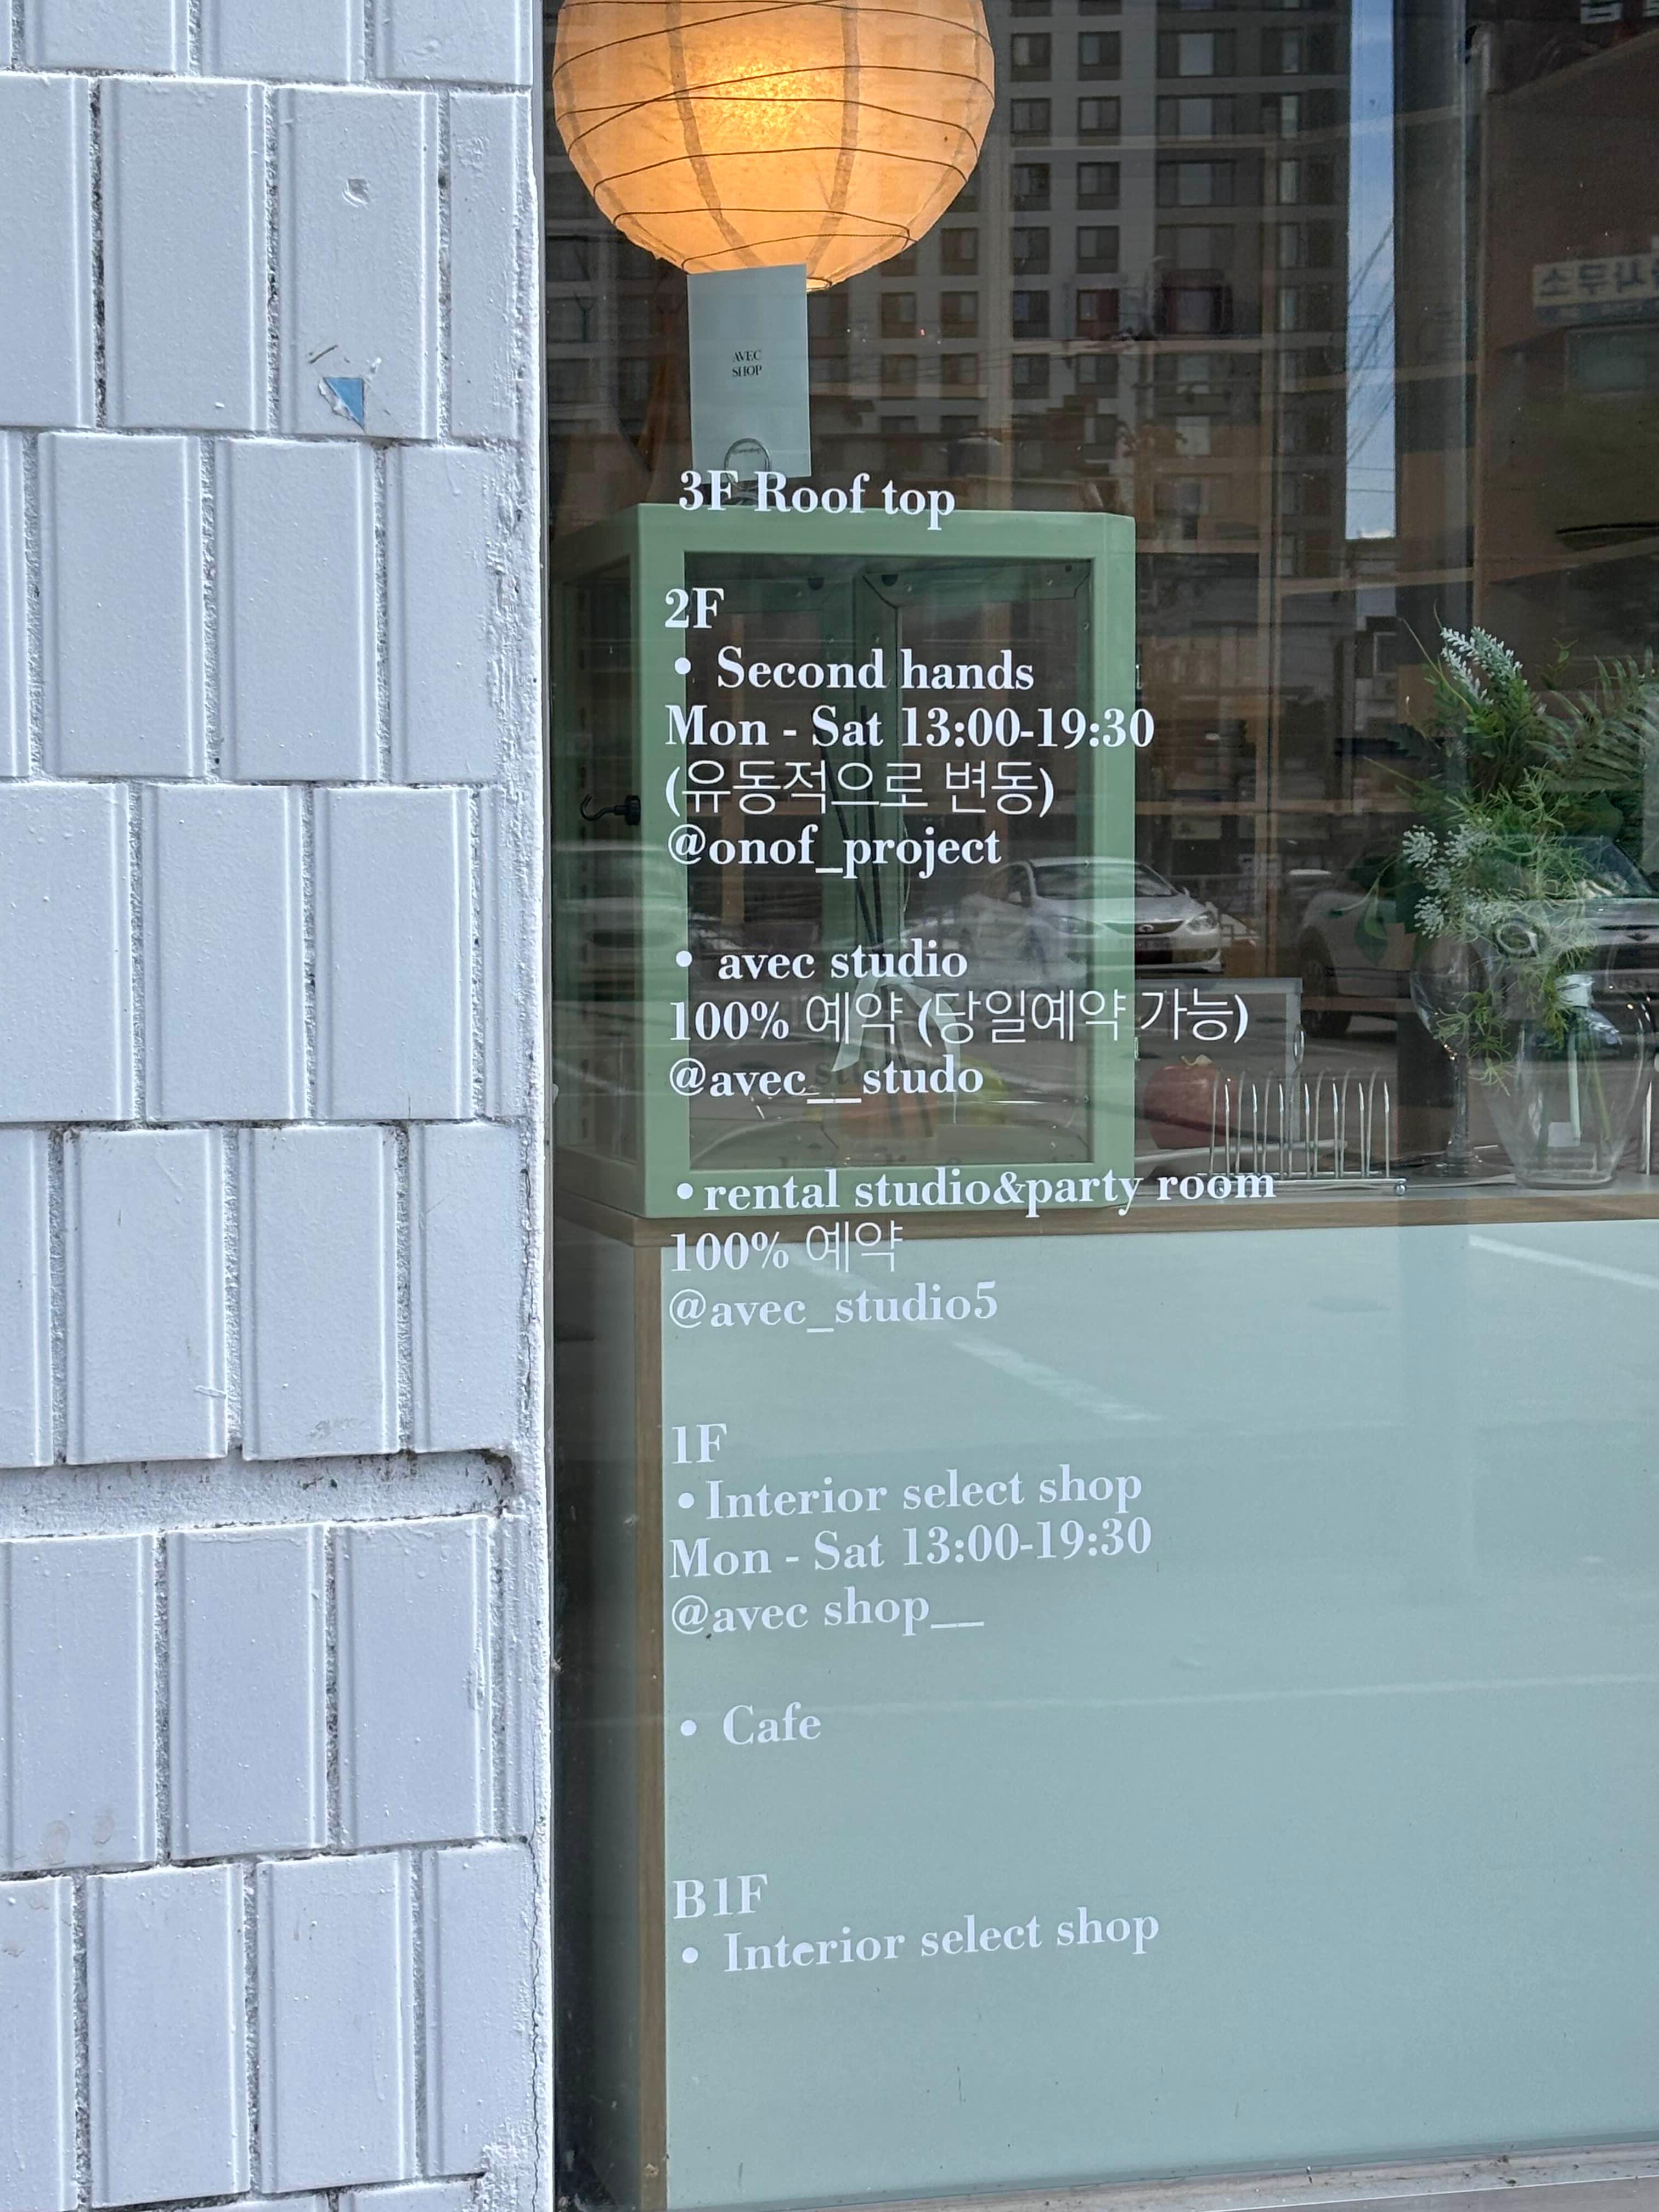 AVEC
SHOP
3F Roof top
2F
• Second hands
Mon - Sat 13:00-19:30
(유동적으로 변동)
@onof_project
• avec studio
100% 예약 (당일예약 가능)
@avec__studo
•rental studio&party room
100% 예약
@avec_studio5
1F
•Interior select shop
Mon - Sat 13:00-19:30
@avec shop__
• Cafe
B1F
• Interior select shop